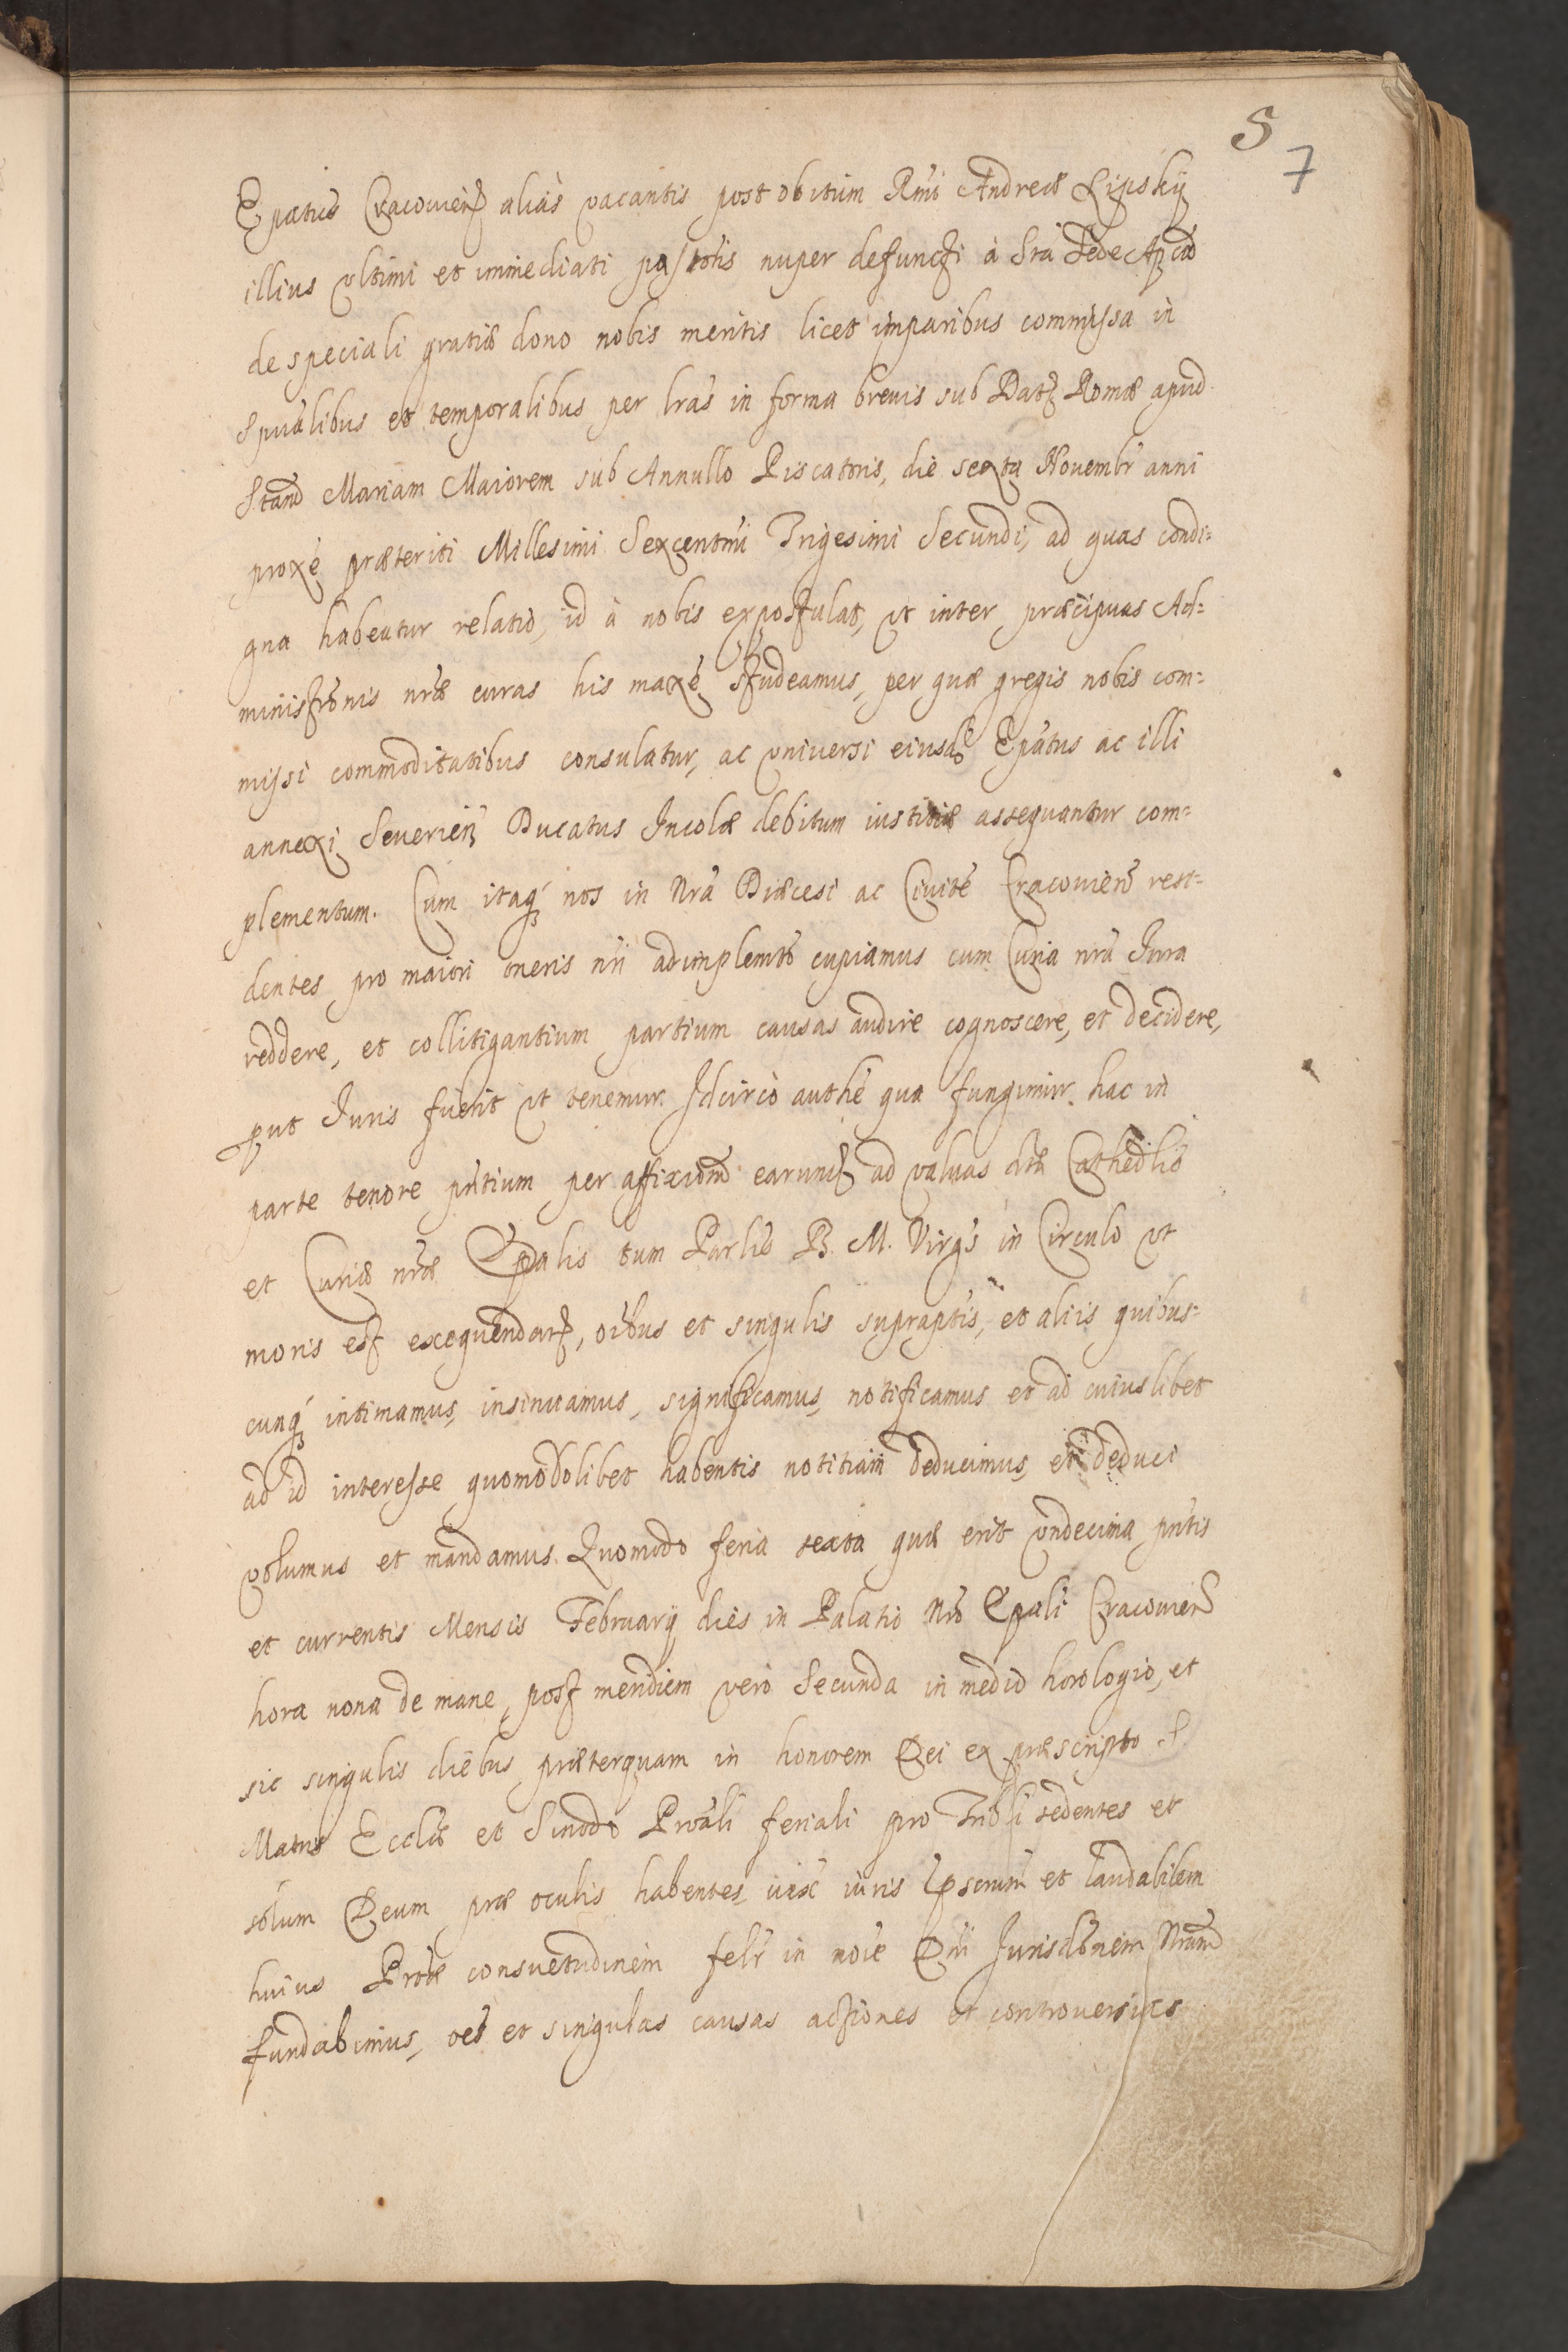 5
7
Epatus Cracouien̄ alias vacantis post obitum Rm̄i Andreæ Lipskij
illius vltimi et immediati pastoris nuper defuncti à Stā Sede Aplcā
de speciali gratiæ dono nobis meritis licet imparibus commissa in
Spūalibus et temporalibus per lras in forma breuis sub Dat Romæ apud
Stam Mariam Maiorem sub Annullo Piscatoris, die sexta Nouembr anni
proxè præteriti Millesimi Sexcentmi Trigesimi Secundi, ad quas condi=
gna habeatur relatio, id à nobis expostulat, vt inter præcipuas Ad=
ministrōnis nræ curas his maxè studeamus, per quæ gregis nobis com=
missi commoditatibus consulatur, ac vniuersi eiusdē Epatus ac illi
annexi Seuerien̄ Ducatus Incolæ debitum iustitiæ assequantur com=
plementum. Cum itaq; nos in Nrā Diæcesi ac Ciuitē Cracouien̄ resi=
dentes pro maiori oneris nr̄i adimplemto cupiamus cum Curia nrā Iura
reddere, et collitigantium partium causas audire cognoscere, et decidere,
put Iuris fuerit vt tenemur. Idcircò authē qua fungimur hac in
parte tenore pn̄tium per affixionē earumd̄ ad valuas dtæ Cathedlis
et Curiæ nræ Epalis tum Parlis B. M. Virgs in Circulo vt
moris est exequendar, oībus et singulis supraptis, et aliis quibus=
cunq; intimamus, insinuamus, significamus, notificamus et ad cuiuslibet
ad id interesse quomodolibet habentis notitiam deducimus, et deduci
volumus et mandamus. Quomodo feria sexta quæ erit vndecima pn̄tis
et currentis Mensis Februarij dies in Palatio Nro Epali Cracouien̄
hora nona de mane, post meridiem verò Secunda in medio horologio, et
sic singulis diebus præterquam in honorem Dei ex præscripto S.
Matris Ecclæ et Sinodo Proāli feriali pro Tribli sedentes et
solum Deum præ oculis habentes, iux iuris ipsorum et laudabilem
huius Proæ consuetudinem felr in noīe Dn̄i Jurisdōnem Nram
fundabimus, oēs et singulas causas actiones et controuersias